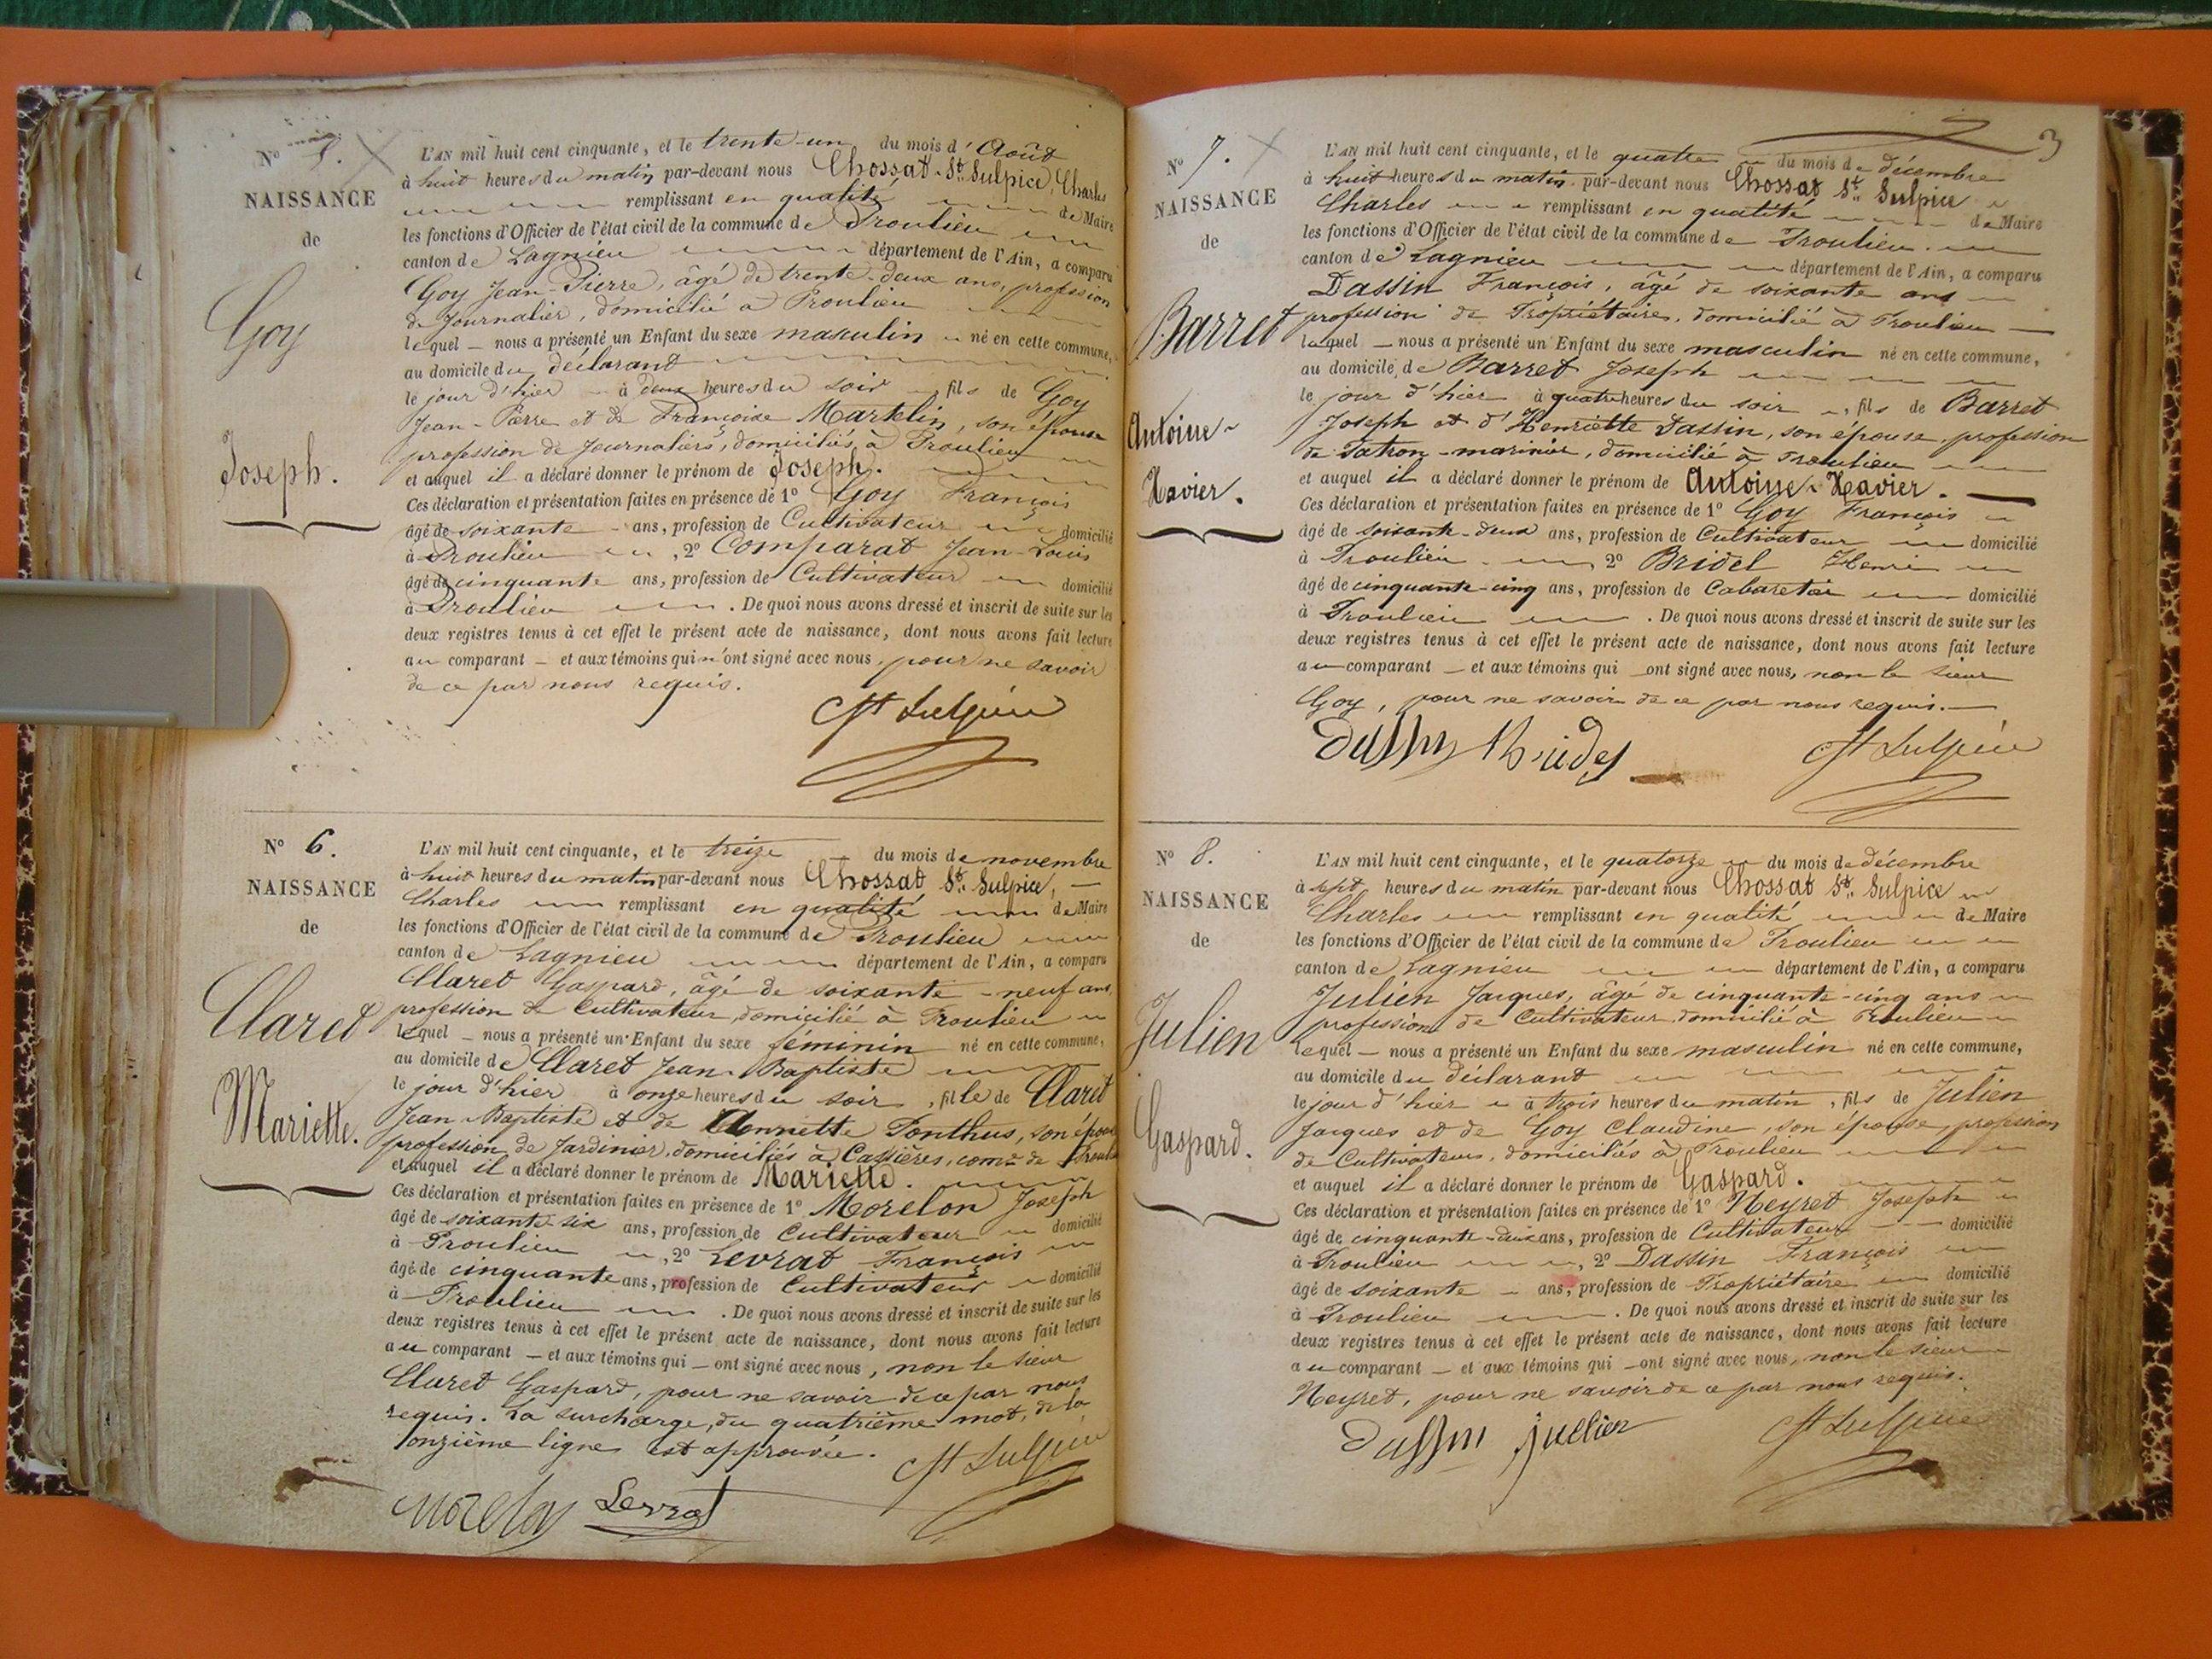 N° 5.
NAISSANCE
de
Goy
Joseph.
L'AN mil huit cent cinquante, et le trente-un du mois d'Août
à huit heures du matin par-devant nous Chossat-St. Sulpice, Charles
remplissant en qualité de Maire
les fonctions d'Officier de l'état civil de la commune de Proulieu
canton de Lagnieu département de l'Ain, a comparu
Goy Jean-Pierre, âgé de trente-deux ans, profession
de Journalier, domicilié à Proulieu
lequel nous a présenté un Enfant du sexe masculin né en cette commune,
au domicile du déclarant
le jour d'hier à deux heures du soir fils de Goy
Jean-Pierre et de Françoise Martelin, son épouse
profession de Journaliers, domiciliés à Proulieu
et auquel il a déclaré donner le prénom de Joseph.
Ces déclaration et présentation faites en présence de 1° Goy François
âgé de soixante ans, profession de Cultivateur domicilié
à Proulieu , 2° Comparat Jean-Louis
âgé de cinquante ans, profession de Cultivateur domicilié
à Proulieu . De quoi nous avons dressé et inscrit de suite sur les
deux registres tenus à cet effet le présent acte de naissance, dont nous avons fait lecture
au comparant et aux témoins qui n'ont signé avec nous, pour ne savoir
de ce par nous requis.
Cst Sulpice
N° 6.
NAISSANCE
de
Claret
Mariette.
L'AN mil huit cent cinquante, et le treize du mois de novembre
à huit heures du matin par-devant nous Chossat St. Sulpice,
Charles remplissant en qualité de Maire
les fonctions d'Officier de l'état civil de la commune de Proulieu
canton de Lagnieu département de l'Ain, a comparu
Claret Gaspard, âgé de soixante-neuf ans,
profession de Cultivateur, domicilié à Proulieu
lequel nous a présenté un Enfant du sexe féminin né en cette commune,
au domicile de Claret Jean-Baptiste
le jour d'hier à onze heures du soir, fille de Claret
Jean-Baptiste et de Annette Ponthus, son épouse
profession de Jardinier, domiciliés à Cassières, comne de Proulieu
et auquel il a déclaré donner le prénom de Mariette.
Ces déclaration et présentation faites en présence de 1° Morelon Joseph
âgé de soixante-six ans, profession de Cultivateur domicilié
à Proulieu , 2° Levrat François
âgé de cinquante ans, profession de Cultivateur domicilié
à Proulieu . De quoi nous avons dressé et inscrit de suite sur les
deux registres tenus à cet effet le présent acte de naissance, dont nous avons fait lecture
au comparant et aux témoins qui ont signé avec nous, non le sieur
Claret Gaspard, pour ne savoir de ce par nous
requis. La surcharge, du quatrième mot, de la
onzième ligne est approuvée.
Cst Sulpice
Morelon Levrat
3
N° 7.
NAISSANCE
de
Barret
Antoine-
Xavier.
L'AN mil huit cent cinquante, et le quatre du mois de décembre
à huit heures du matin par-devant nous Chossat St. Sulpice
Charles remplissant en qualité de Maire
les fonctions d'Officier de l'état civil de la commune de Proulieu.
canton de Lagnieu département de l'Ain, a comparu
Dassin François, âgé de soixante ans
profession de Propriétaire, domicilié à Proulieu
lequel nous a présenté un Enfant du sexe masculin né en cette commune,
au domicile de Barret Joseph
le jour d'hier à quatre heures du soir, fils de Barret
Joseph et d'Henriette Dassin, son épouse, profession
de Patron-marinier, domicilié à Proulieu
et auquel il a déclaré donner le prénom de Antoine-Xavier.
Ces déclaration et présentation faites en présence de 1° Goy François
âgé de soixante-deux ans, profession de Cultivateur domicilié
à Proulieu 2° Bridel Henri
âgé de cinquante-cinq ans, profession de Cabaretier domicilié
à Proulieu . De quoi nous avons dressé et inscrit de suite sur les
deux registres tenus à cet effet le présent acte de naissance, dont nous avons fait lecture
au comparant et aux témoins qui ont signé avec nous, non le sieur
Goy, pour ne savoir de ce par nous requis.
Dassin Cst Sulpice
N° 8.
NAISSANCE
de
Julien
Gaspard.
L'AN mil huit cent cinquante, et le quatorze du mois de décembre
à sept heures du matin par-devant nous Chossat St. Sulpice
Charles remplissant en qualité de Maire
les fonctions d'Officier de l'état civil de la commune de Proulieu
canton de Lagnieu département de l'Ain, a comparu
Julien Jacques, âgé de cinquante-cinq ans
profession de Cultivateur, domicilié à Proulieu
lequel nous a présenté un Enfant du sexe masculin né en cette commune,
au domicile du déclarant
le jour d'hier à trois heures du matin, fils de Julien
Jacques et de Goy Claudine, son épouse, profession
de Cultivateurs, domiciliés à Proulieu
et auquel il a déclaré donner le prénom de Gaspard.
Ces déclaration et présentation faites en présence de 1° Neyret Joseph
âgé de cinquante-deux ans, profession de Cultivateur domicilié
à Proulieu , 2° Dassin François
âgé de soixante ans, profession de Propriétaire domicilié
à Proulieu . De quoi nous avons dressé et inscrit de suite sur les
deux registres tenus à cet effet le présent acte de naissance, dont nous avons fait lecture
au comparant et aux témoins qui ont signé avec nous, non le sieur
Neyret, pour ne savoir de ce par nous requis.
Dassin Jullien Cst Sulpice